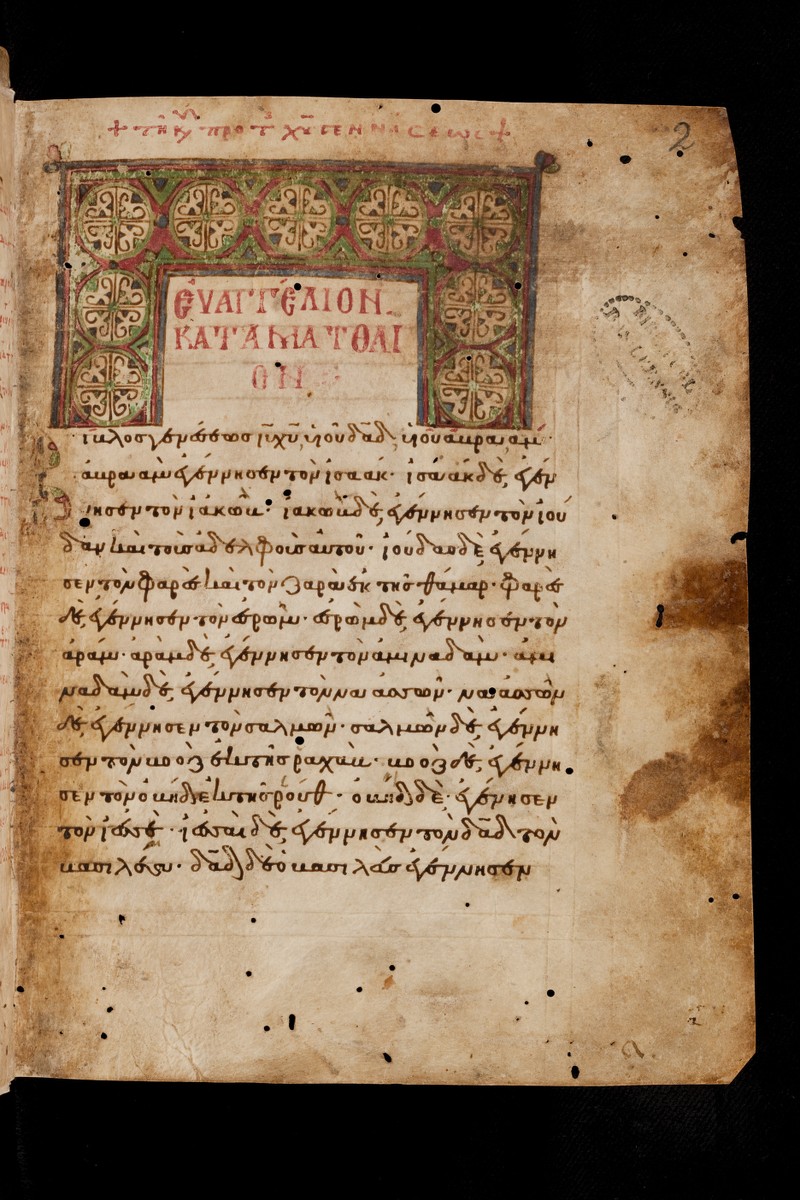 2
ΕΥΑΓΓΕΛΙΟΝ
ΚΑΤΑ ΜΑΤΘΑΙ
ΟΝ
βίβλοσ γενέσεωσ ιυ χυ, υἱοῦ δαδ, υἱοῦ ἀβραάμ·
ἀβραὰμ ἐγέννησεν τὸν ἰσαάκ· ἰσαὰκ δὲ, ἐγέν
νησεν τὸν ἰακώβ· ἰακὼβ δὲ, ἐγέννησεν τὸν ἰού
δαν καὶ τοὺσ ἀδελφοὺσ αὐτοῦ· ἰούδασ δὲ ἐγέννη
σεν τὸν φαρὲσ καὶ τὸν ζαρὰ ἐκ τῆσ θάμαρ· φαρὲσ
δὲ, ἐγέννησεν τὸν ἐσρώμ· ἐσρὼμ δὲ, ἐγέννησεν τὸν
ἀράμ· ἀρὰμ δὲ, ἐγέννησεν τὸν ἀμιναδάμ· ἀμι
ναδὰμ δὲ, ἐγέννησεν τὸν ναασσών· ναασσὼν
δὲ, ἐγέννησεν τὸν σαλμών· σαλμὼν δὲ, ἐγέννη
σεν τὸν βοὸζ ἐκ τῆσ ραχάβ· βοὸζ δὲ, ἐγέννη
σεν τὸν ὀβὴδ ἐκ τῆσ ρούθ· ὀβὴδ δὲ· ἐγένησεν
τὸν ἰεσσέ· ἰεσσαὶ δὲ, ἐγέννησεν τὸν δαδ τὸν
βασιλέα· δαδ δὲ ὁ βασιλεὺσ ἐγέννησεν